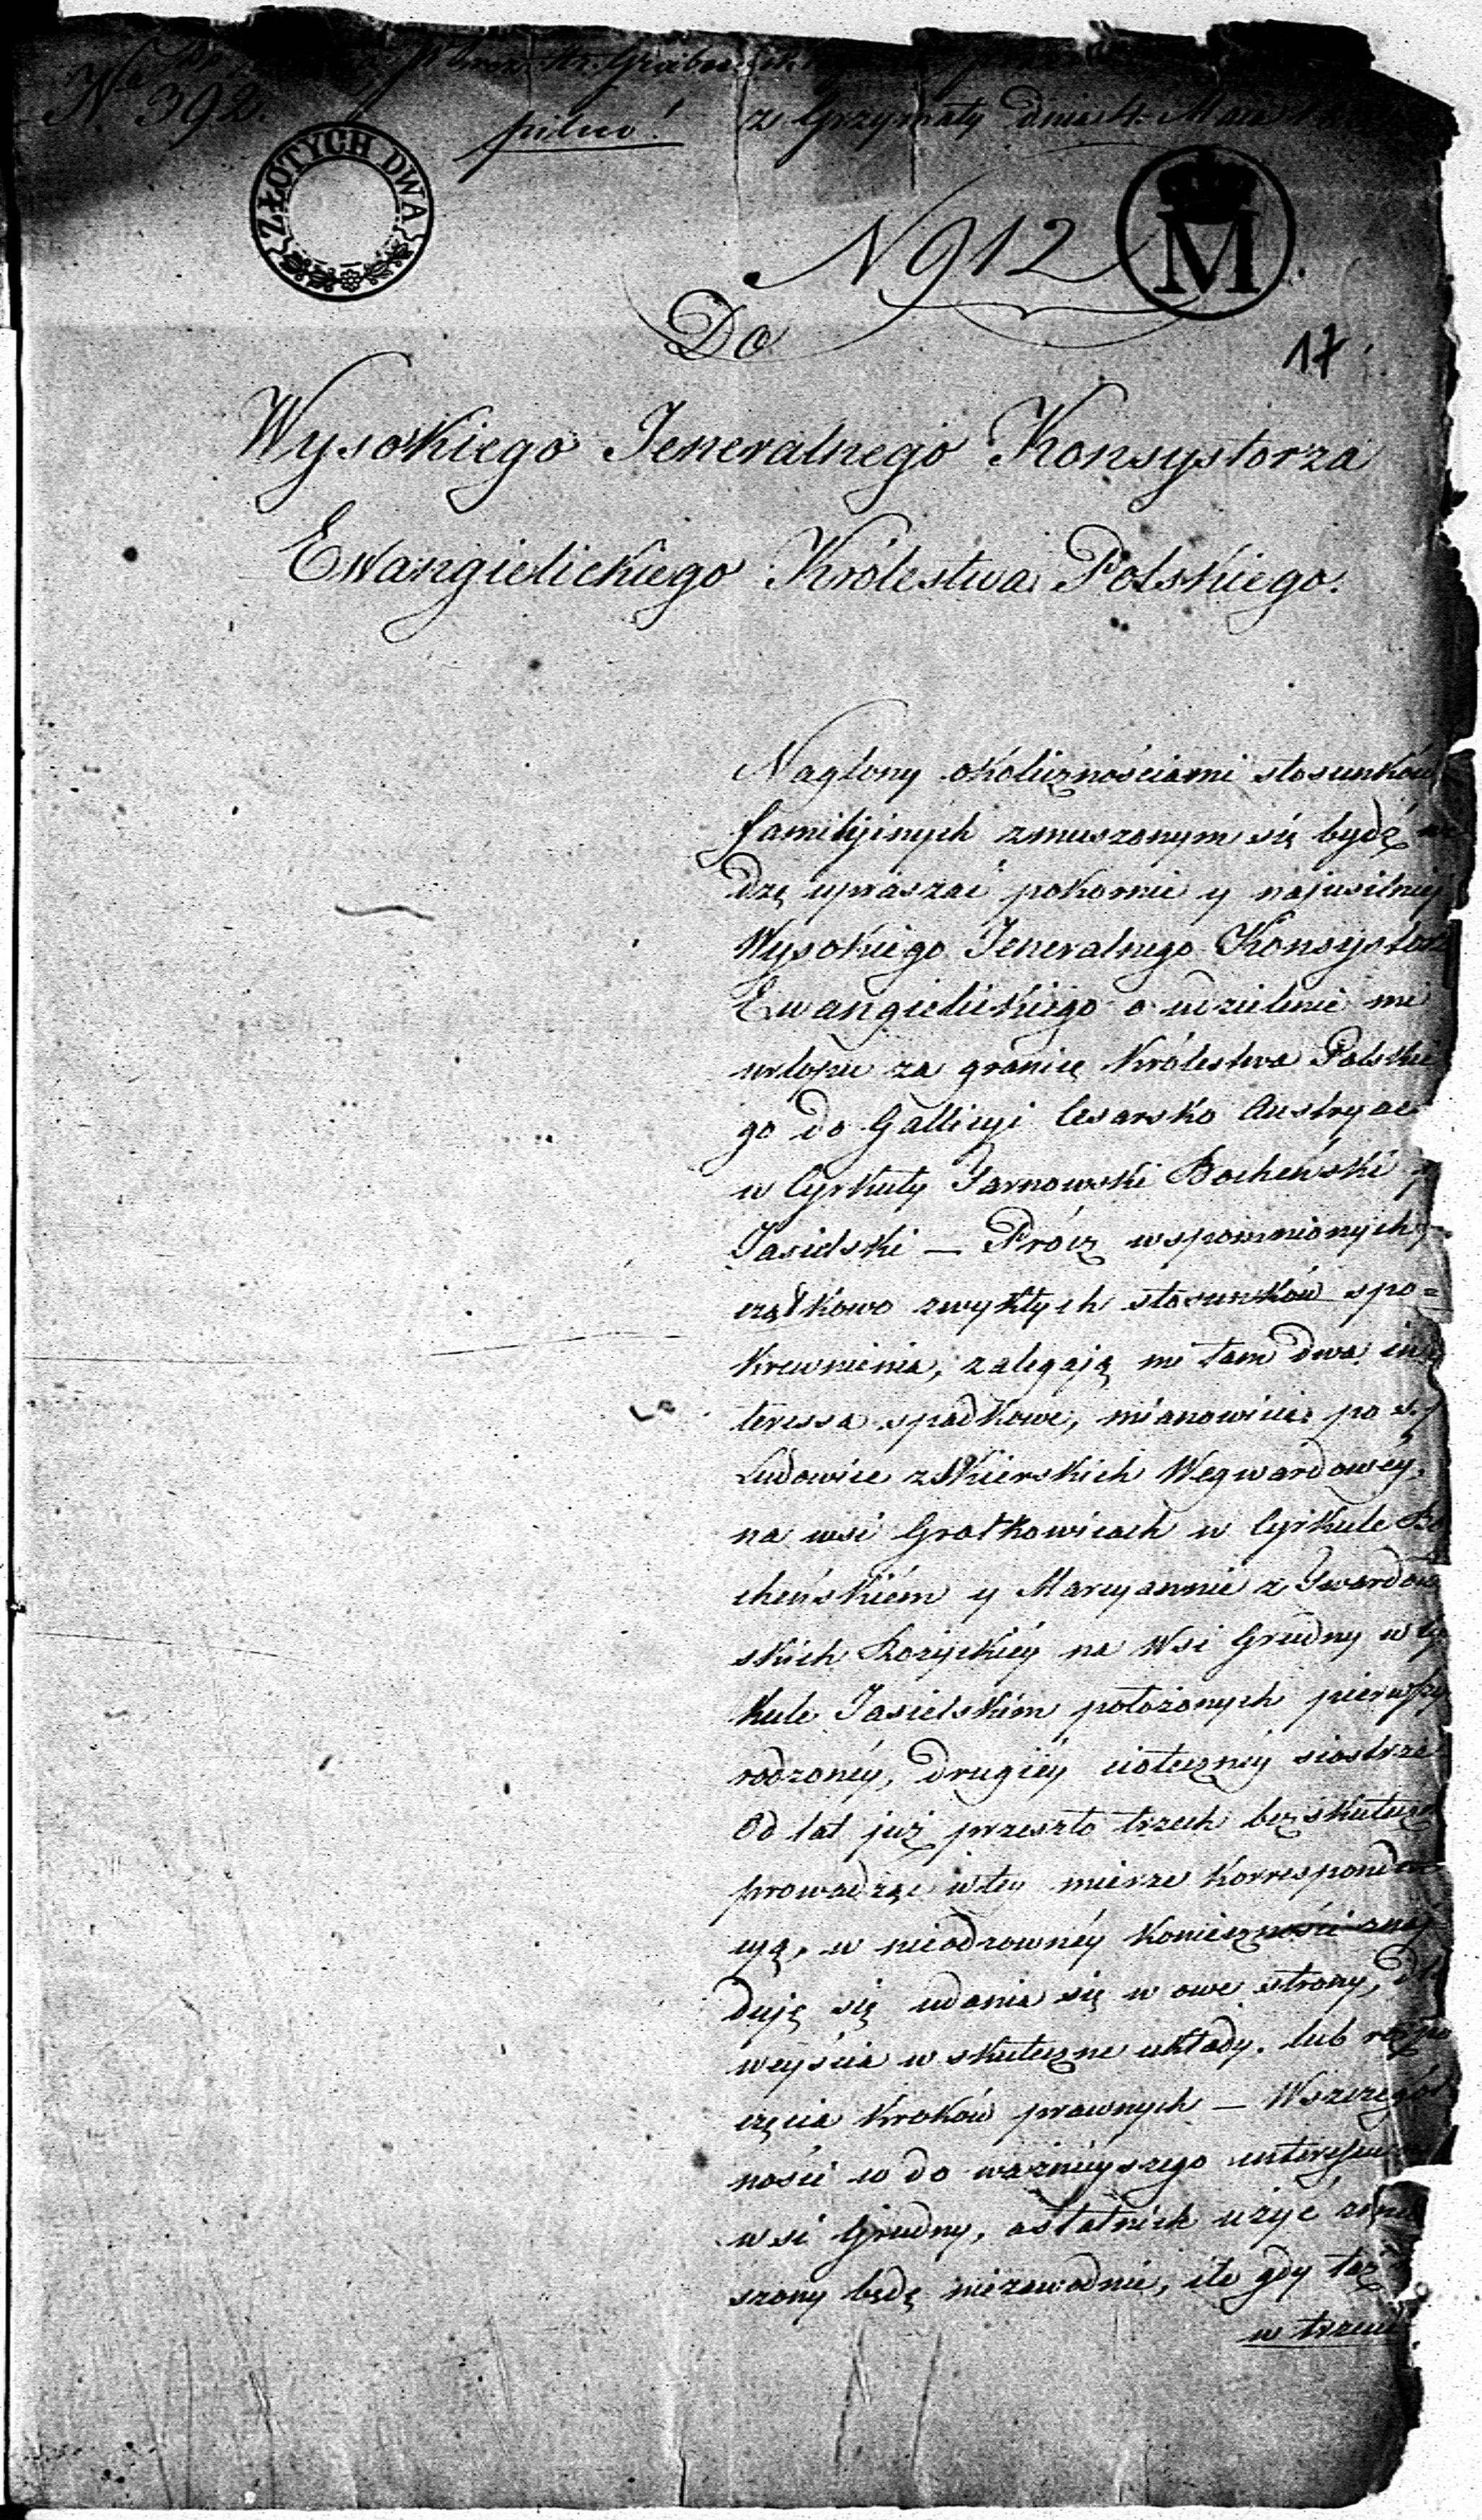 N 392.
pilno! z Grzymały dnia 4. Maia
ZŁOTYCH DWA
N 912
M
Do
17
Wysokiego Jeneralnego Konsystorza
Ewangielickiego Królestwa Polskiego.
Naglony okólicznościami stosunków
familijinych zmuszonym się bydź
dzę upraszać pokornie y najusilniey
Wysokiego Jeneralnego Konsystorz
Ewangielickiego o udzielenie mi
urlopu za granicę Królestwa Polskie
go do Gallicyi Cesarsko Austryac
w Cyrkuły Tarnowski Bocheński y
Jasielski — Prócz wspomnionych
czątkowo zwykłych stosunków spo=
krewnienia, zalegają mi tam dwa in
teressa spadkowe, mianowicie po s.p
Ludowice z Skierskich Wegwardowéy,
na wsi Grotkowicach w Cyrkule Bo
cheńskiém y Maryannie z Twardow
skich Rożyckiéy na Wsi Grudny w Cyr
kule Jasielskim położonych pierwszy
rodzonéy, drugiéy ciotecznéy siostrze
Od lat już przeszło trzech bezskuteczn
prowadząc w tey mierze korresponden
cyą, w nieodzownéy konieczności znay
duję się udania się w owe strony, dla
weyścia w skuteczne układy, lub rozpo
częcia kroków prawnych — W szczegól
ności w do ważnieyszego interessu
wsi Grudny, ostatnich użyć zmu
szony będę niezawodnie, ile gdy taż
w trzeci